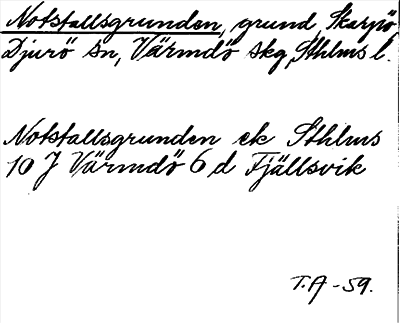 Notstallsgrunden, grund, Skarpö,
Djurö sn, Värmdö skg, Sthlms l.
Notstallsgrunden ek Sthlms
10 J Värmdö 6 d Fjällsvik
T.A -59.